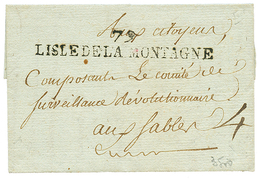 Aux citoyens
79
LISLE DE LA MONTAGNE
Composants Le comité de
surveillance Révolutionnaire
aux sables 4